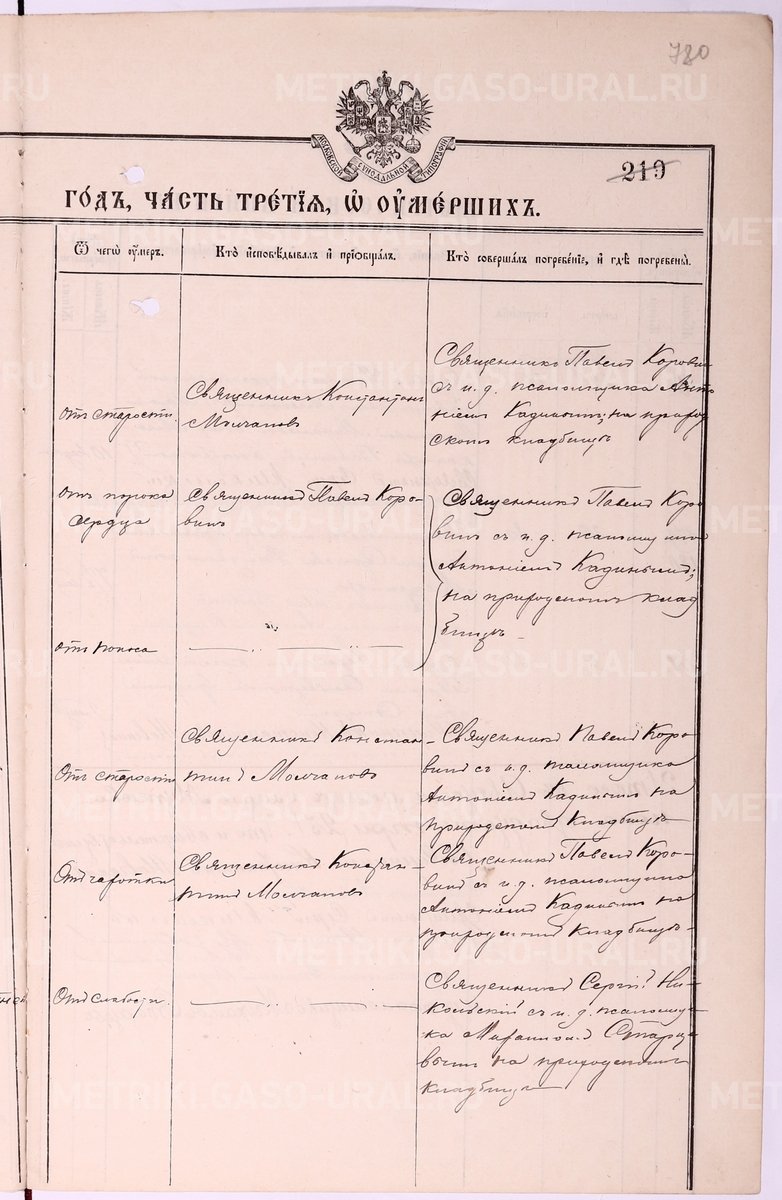 780
METRIKI.GASO-URAL.RU
МОСКОВСКОЙ СѴНОДАЛЬНОЙ ТИПОГРАФІИ
219
ГО́ДЪ, ЧА́СТЬ ТРЕ́ТІЯ, Ѡ҆ ОУ҆МЕ́РШИХЪ.
Ѿ чегѡ̀ ᲂу҆́меръ.
Кто̀ и҆сповѣ́дывалъ и҆ пріѡбща́лъ.
Кто̀ соверша́лъ погребе́нїе, и҆ гдѣ̀ погребены̀.
отъ старости
Священникъ Константинъ
Молчановъ
Священникъ Павелъ Корови
съ и. д. псаломщика Анто
ніемъ Кадинымъ; на природ
скомъ кладбищѣ
отъ порока
сердца
Священникъ Павелъ Коро-
винъ
Священникъ Павелъ Коро
винъ съ и. д. псаломщика
Антоніемъ Кадинымъ;
на природскомъ клад
бищѣ
отъ поноса
Отъ старости
Священникъ Констан-
тинъ Молчановъ
Священникъ Павелъ Коро
винъ съ и. д. псаломщика
Антоніемъ Кадинымъ на
природскомъ кладбищѣ
Отъ чахотки
Священникъ Констан-
тинъ Молчановъ
Священникъ Павелъ Коро-
винъ съ и. д. псаломщика
Антоніемъ Кадинымъ на
природскомъ кладбищѣ
Отъ слабости
Священникъ Сергій Ни-
кольскій съ и. д. псаломщи
ка Старце
вымъ на природскомъ
кладбищѣ